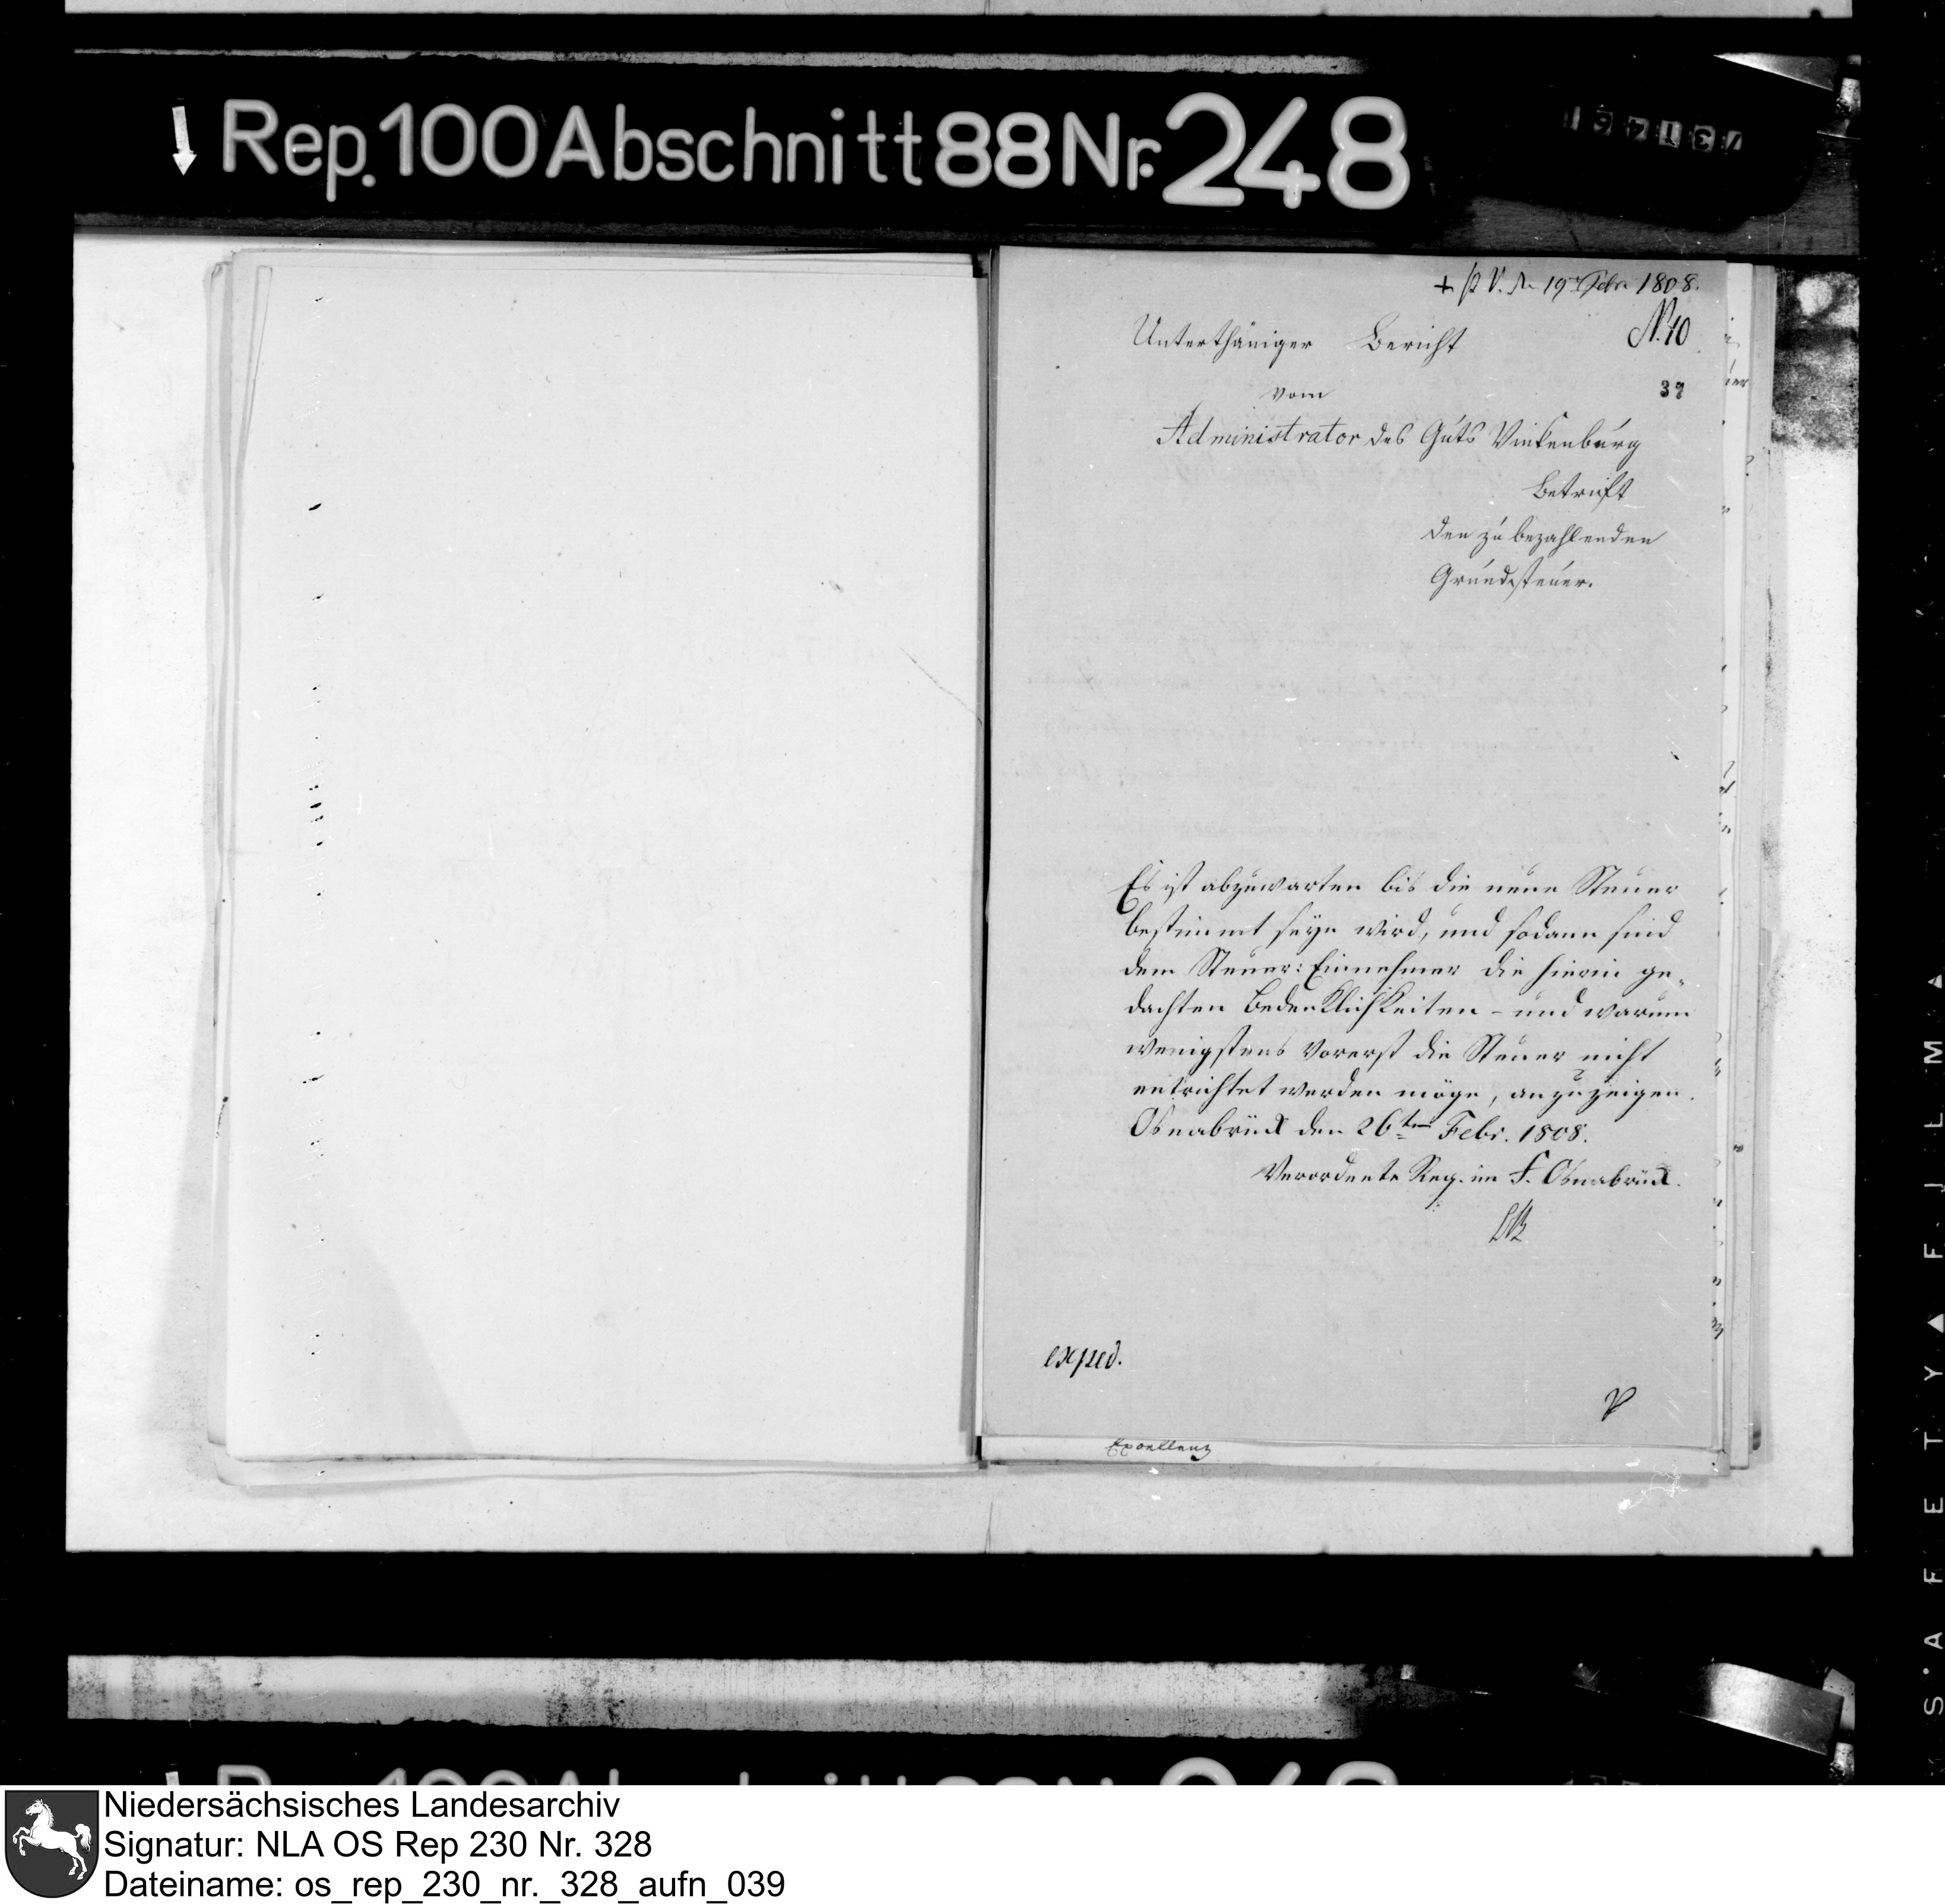 Rep. 100 Abschnitt 88 Nr. 248
19 Febr 1808.
N. 10
Unterthäniger Bericht
vom
39
Administrator des Guts Vinkenburg
betrift
den zu bezahlenden
Grundsteuer.
Es ist abzuwarten bis die neue Steuer
bestimmt seyn wird, und sodann sind
dem Steuer: Einnehmer die hierin ge-
dachten Bedenklichkeiten - und warum
wenigstens vorerst die Steuer nicht
entrichtet werden möge, anzuzeigen.
Osnabrück den 26ten Febr. 1808.
Verordnete Reg. im F. Osnabrück.
exped.
Excellenz
SAFETY FILM
Niedersächsisches Landesarchiv
Signatur: NLA OS Rep 230 Nr. 328
Dateiname: os_rep_230_nr._328_aufn_039